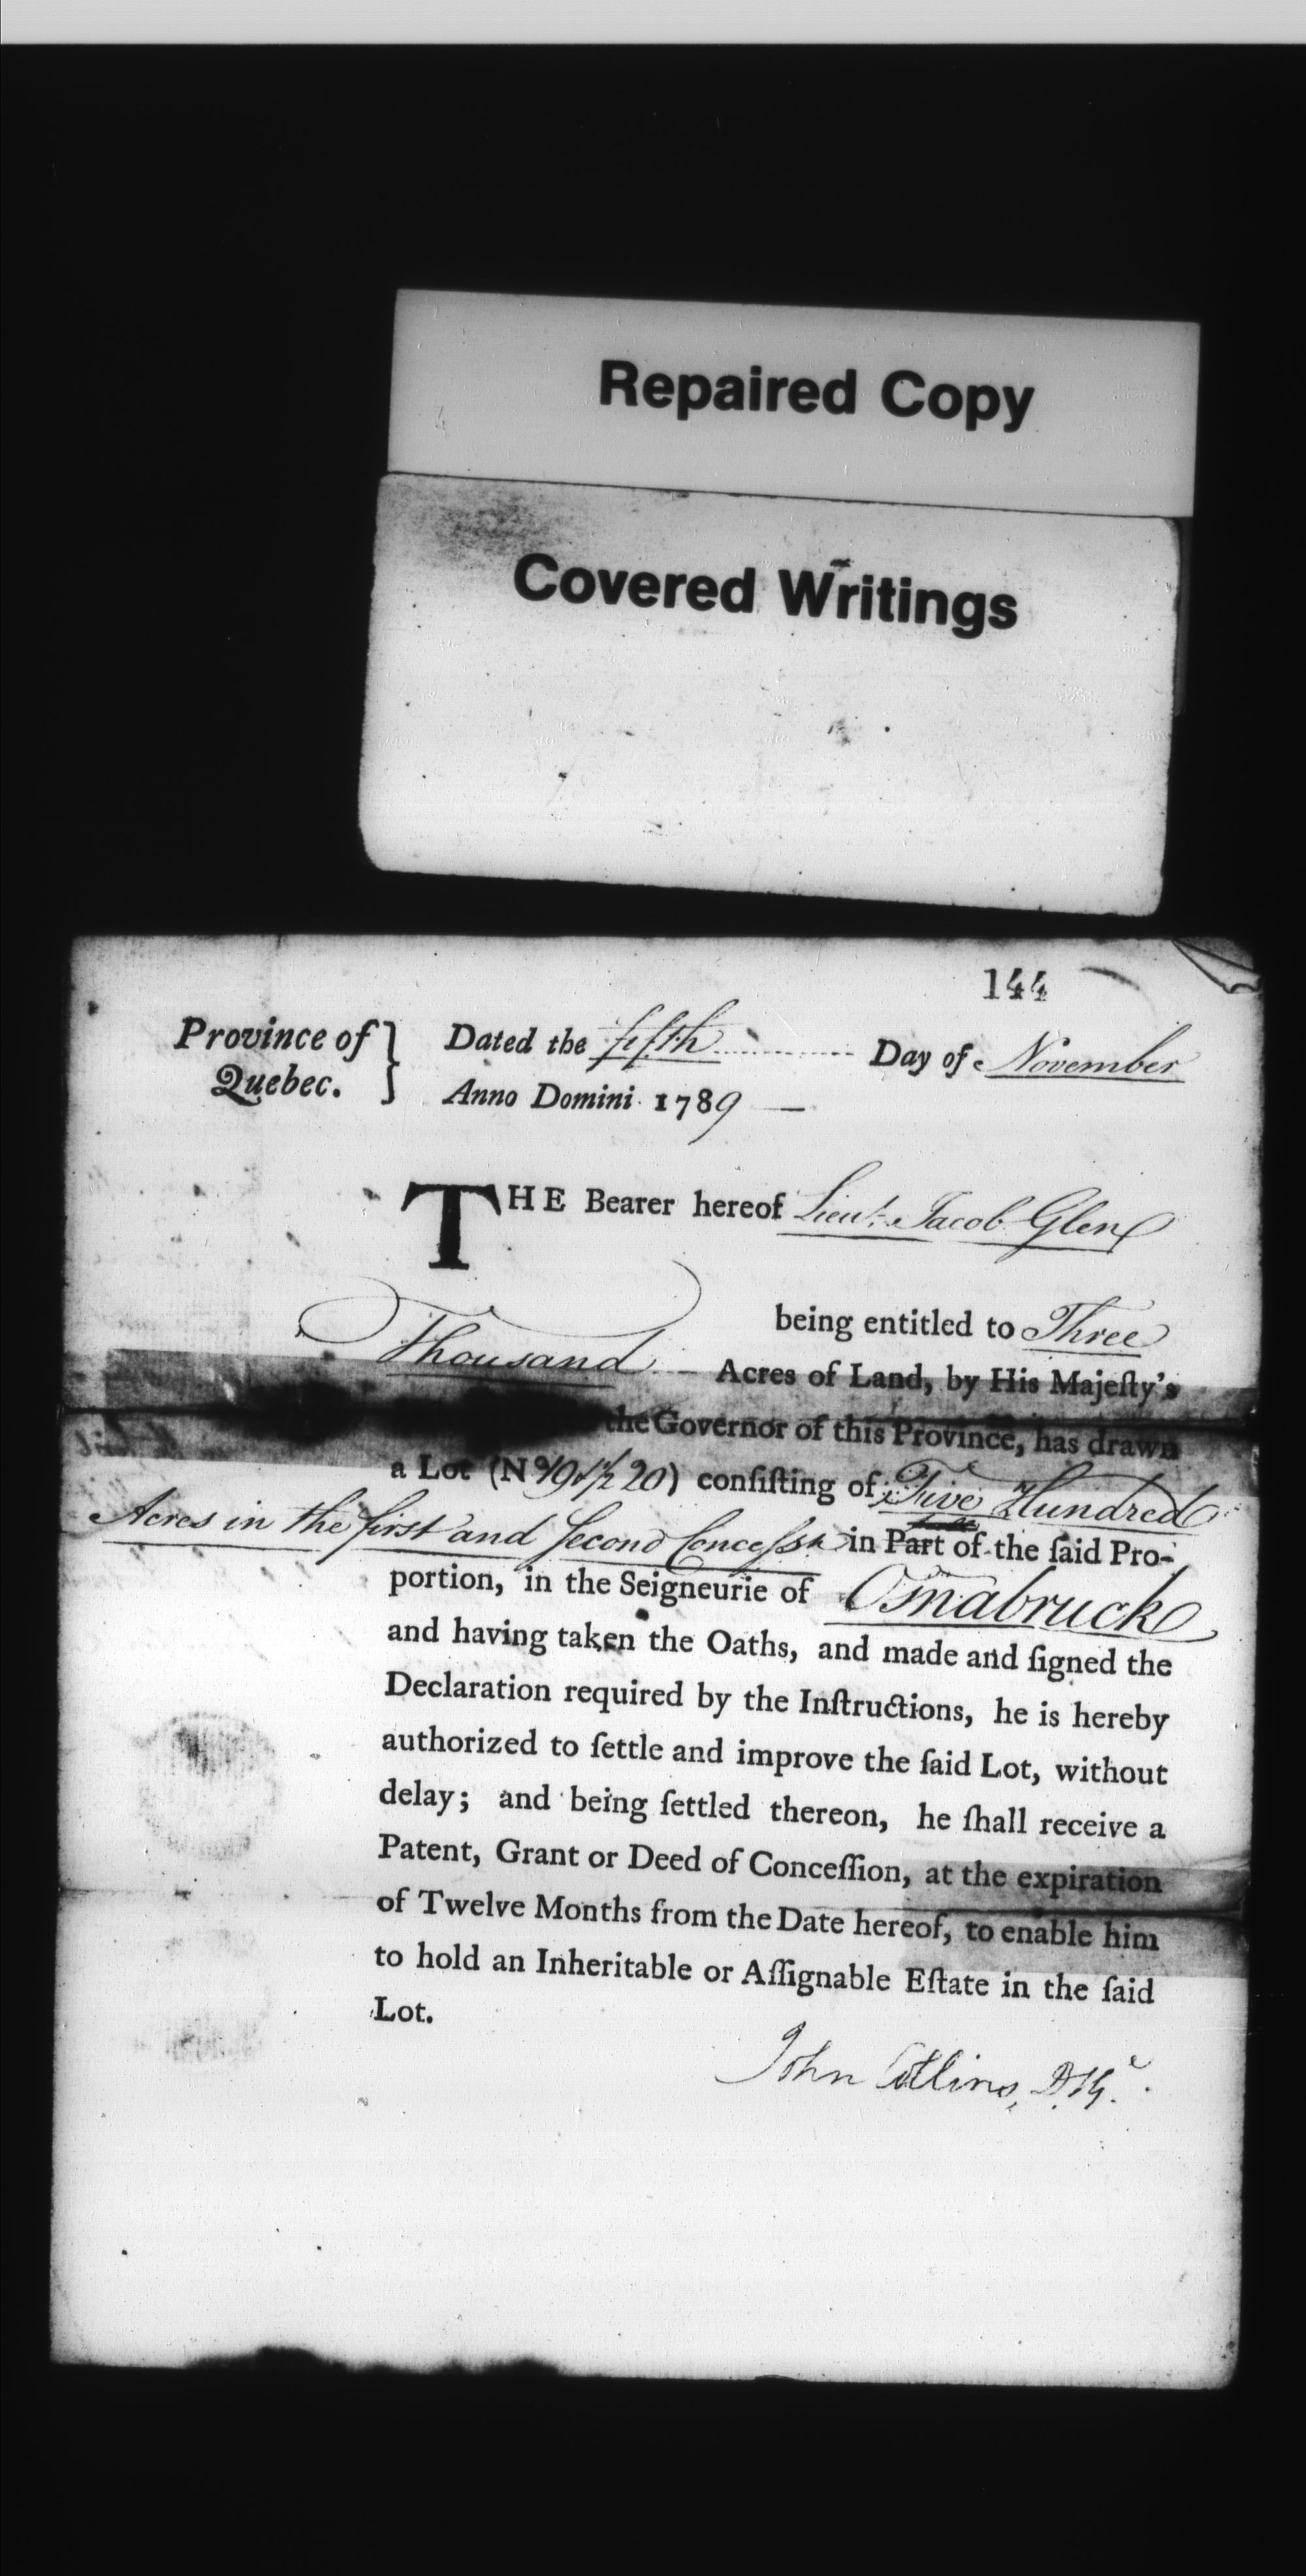 Repaired Copy
Covered Writings
144
Province of Quebec. } Dated the fifth Day of November
Anno Domini 1789 —
THE Bearer hereof Lieut. Jacob Glen
being entitled to Three
Thousand Acres of Land, by His Majeſty's
the Governor of this Province, has drawn
a Lot (No 19 & 1/2 20) conſiſting of Five Hundred
Acres in the first and Second Concessn in Part of the ſaid Pro-
portion, in the Seigneurie of Osnabruck
and having taken the Oaths, and made and ſigned the
Declaration required by the Inſtructions, he is hereby
authorized to ſettle and improve the ſaid Lot, without
delay; and being ſettled thereon, he ſhall receive a
Patent, Grant or Deed of Conceſſion, at the expiration
of Twelve Months from the Date hereof, to enable him
to hold an Inheritable or Aſſignable Eſtate in the ſaid
Lot.
John Collins, D.